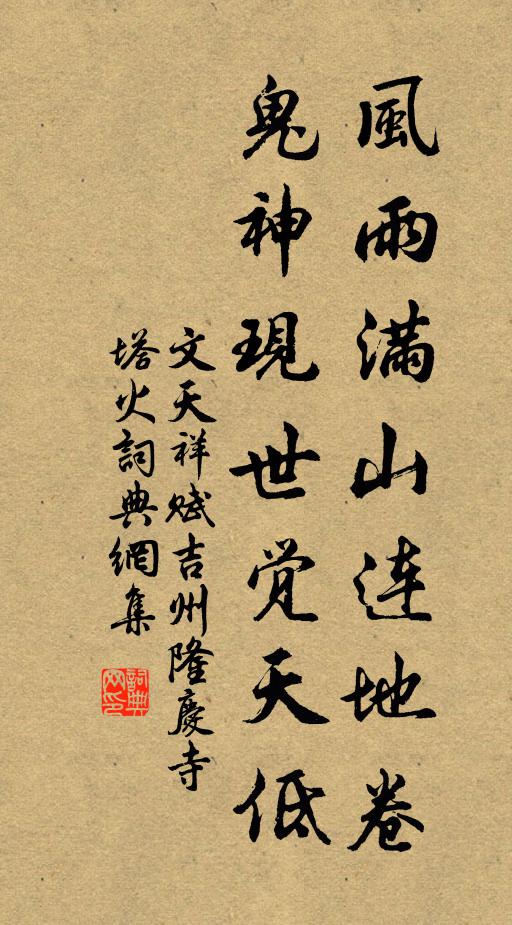 風雨滿山連地卷
鬼神現世覺天低
文天祥賦吉州隆慶寺
塔火詞典網集
詞典網印